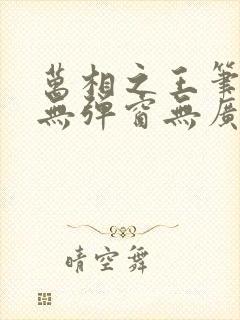 萬相之王筆
無彈窗無廣
晴空舞